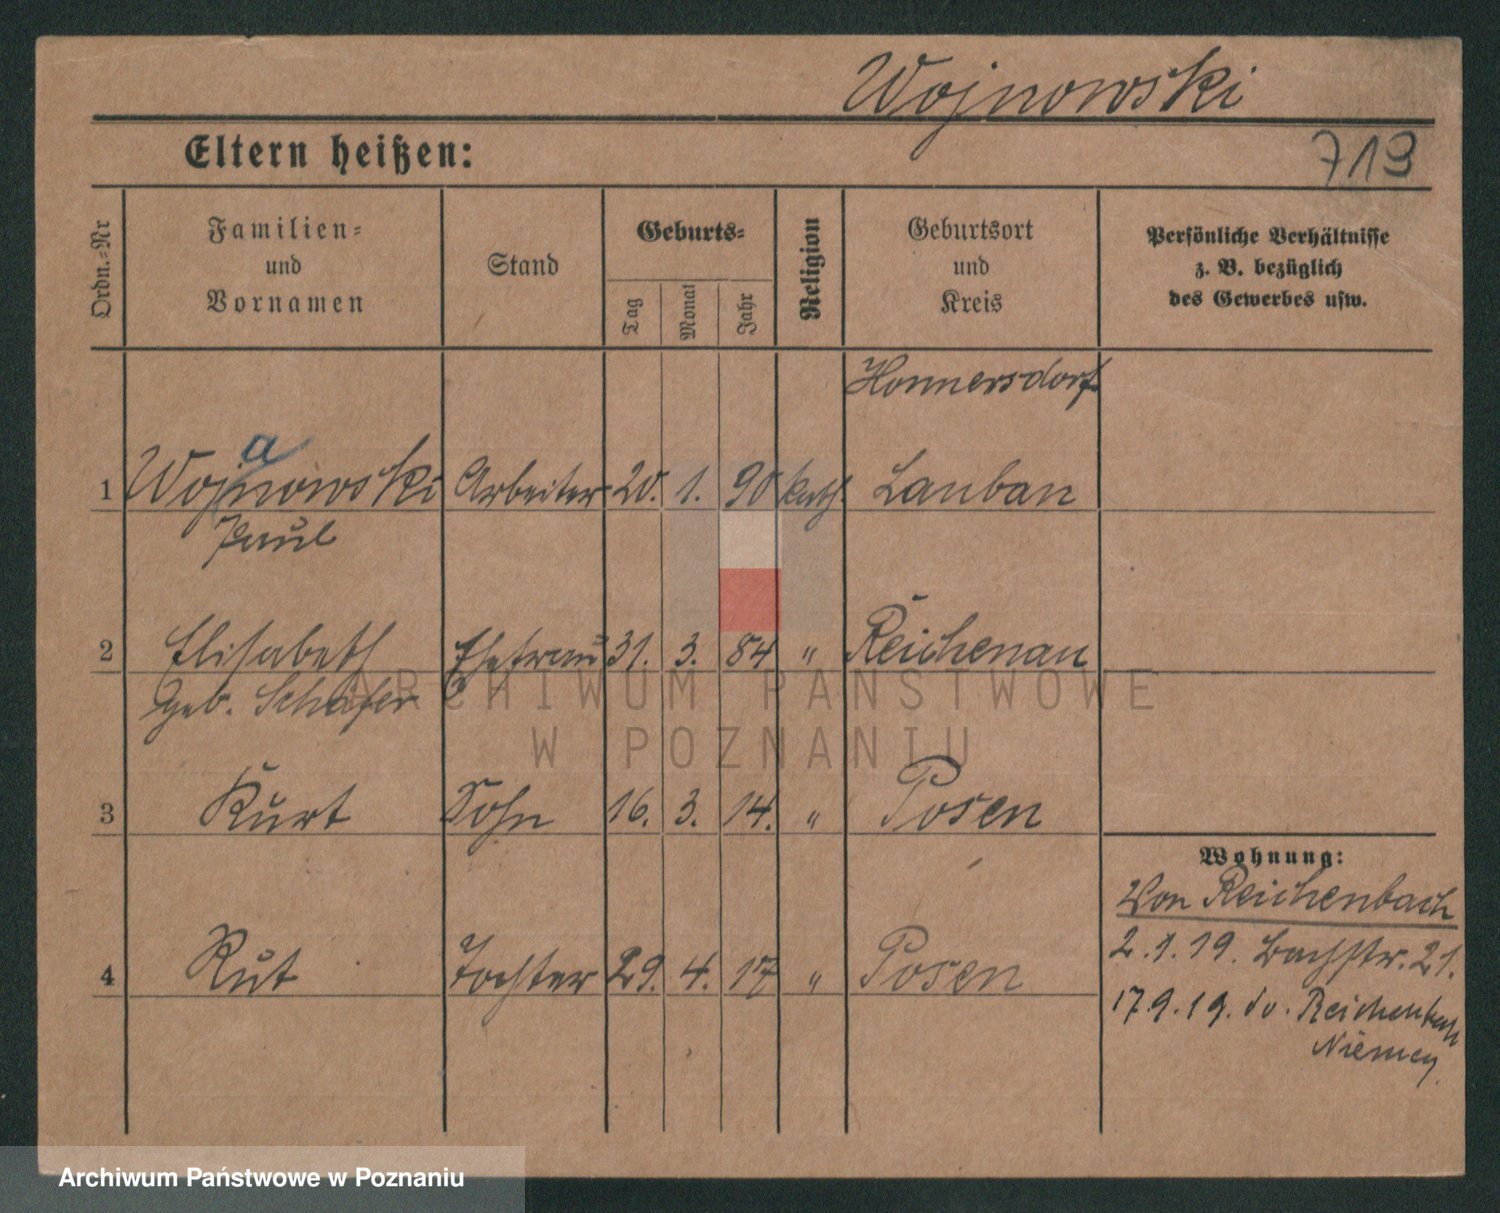 Wojnowski
Eltern heißen:
719
Ordn.-Nr
Familien-
und
Vornamen
Stand
Geburts-
Tag
Monat
Jahr
Religion
Geburtsort
und
Kreis
Persönliche Verhältnisse
z. B. bezüglich
des Gewerbes usw.
Honnersdorf
a
1 Wojnowski Arbeiter 20. 1. 90 kath. Lauban
Paul
2 Elisabeth Ehefrau 31. 3. 84 " Reichenau
geb. Schäfer
ARCHIWUM PAŃSTWOWE
W POZNANIU
3 Kurt Sohn 16. 3. 14. " Posen
Wohnung:
Von Reichenbach
4 Rut Tochter 29. 4. 17 " Posen
2.1.19. Bachstr. 21.
17.9.19. do. Reichenbach
Niemcy
Archiwum Państwowe w Poznaniu